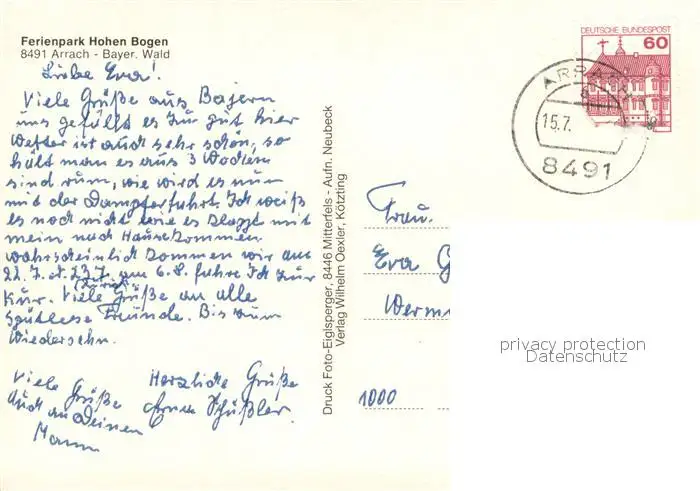 Ferienpark Hohen Bogen
8491 Arrach - Bayer. Wald
Liebe Eva!
Viele Grüße aus Bayern
uns gefällt es zur gut hier
Wetter ist auch sehr schön, so
hält man es aus 3 Wochen
sind rum, wie wird es nun
mit der Dampferfahrt. Ich weiß
es noch nicht wie es klappt mit
mein nach Hausekommen
wahrscheinlich kommen wir am
22.7. od. 23.7. am 6.8. fahre Ich zur
zurück
Kur. Viele Grüße an alle
Freunde. Bis zum
Wiedersehn.
Viele Grüße
auch an Deinen
Mann
Herzliche Grüße
Schüßler
Druck Foto-Eiglsperger, 8446 Mitterfels - Aufn. Neubeck
Verlag Wilhelm Oexler, Kötzting
DEUTSCHE BUNDESPOST
60
ARRACH
15.7.
8491
Frau.
Eva G
Werm
1000
privacy protection
Datenschutz